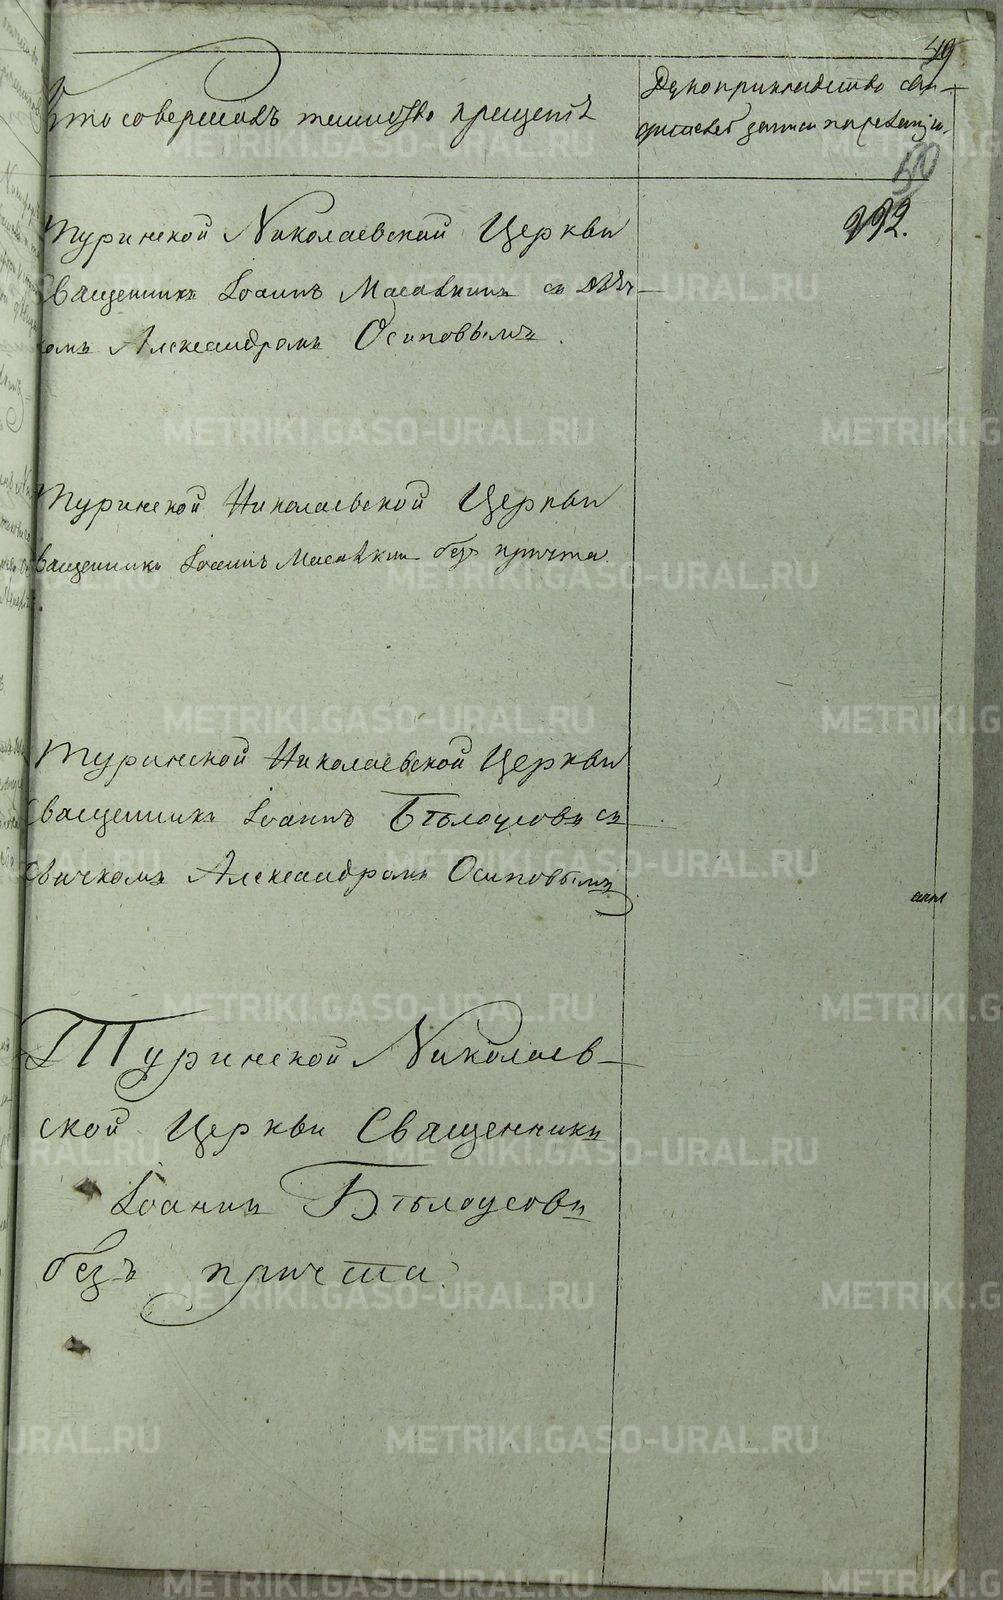 49
Кто совершалъ таинство крещенія
Рукоприкладство сви-
дѣтелей записи по желанію.
50
292.
Туринской Николаевской Церкви
Священникъ Іоаннъ Масалкинъ съ дьяч-
комъ Александромъ Осиповымъ.
Туринской Николаевской Церкви
Священникъ Іоаннъ Масалкинъ безъ причта.
Туринской Николаевской Церкви
Священникъ Іоаннъ Бѣлоусовъ съ
дьячкомъ Александромъ Осиповымъ
Туринской Николаев-
ской Церкви Священникъ
Іоаннъ Бѣлоусовъ
безъ причта.
METRIKI.GASO-URAL.RU